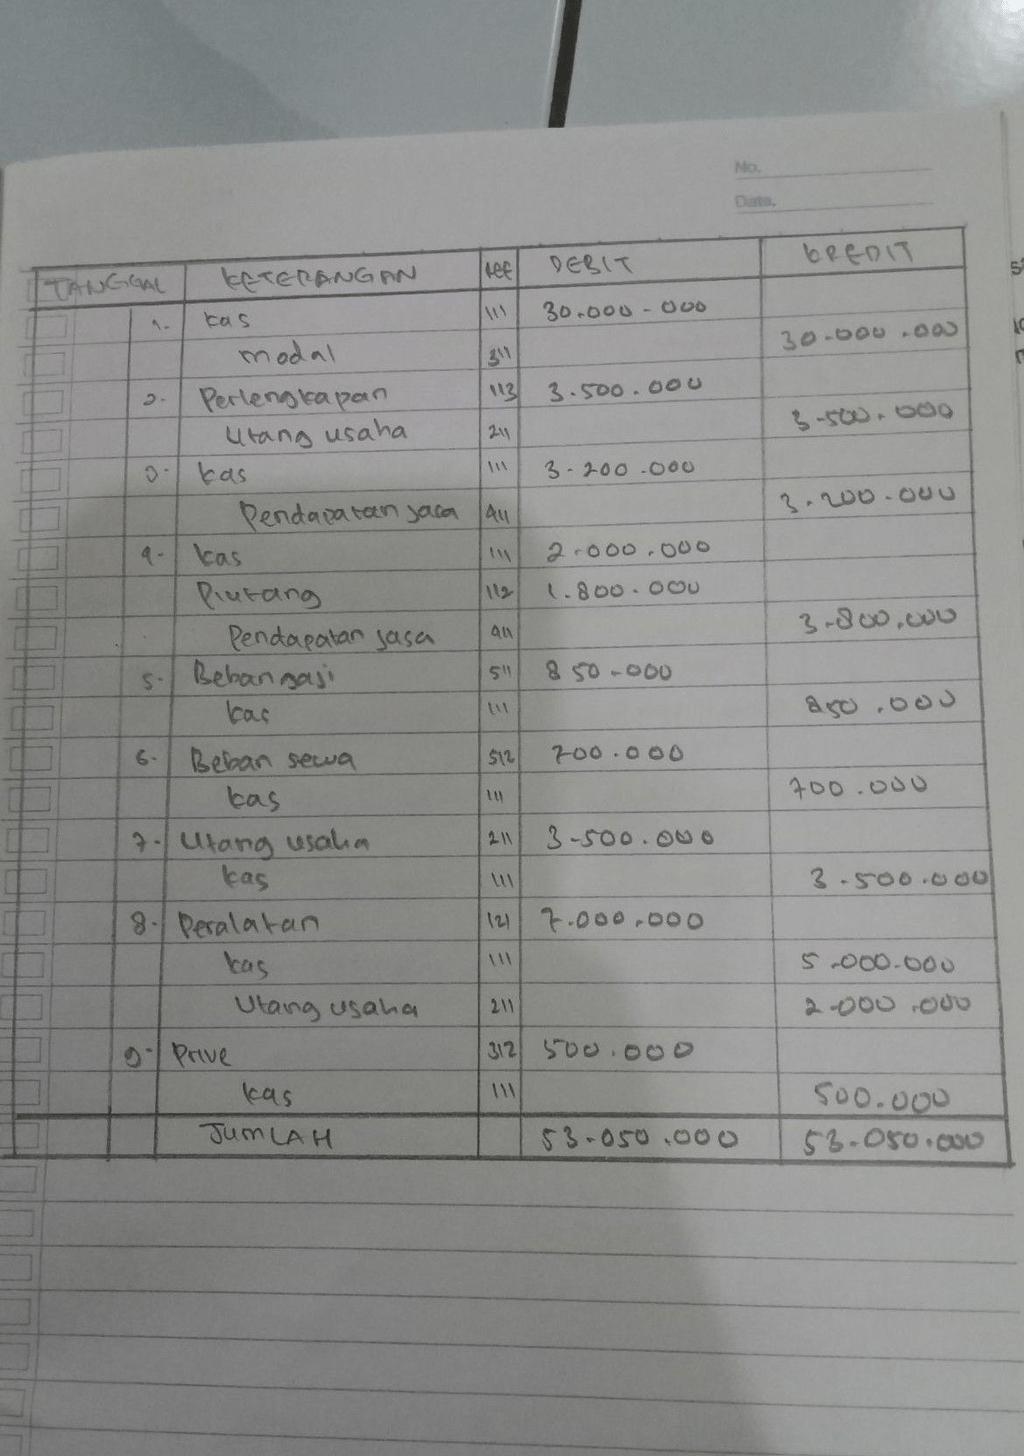 No.
Date.
TANGGAL KETERANGAN REF DEBIT KREDIT
1. kas 111 30.000-000
modal 311 30-000.000
2. Perlengkapan 113 3.500.000
Utang usaha 211 3-500.000
3. kas 111 3-200.000
Pendapatan jasa 411 3.200.000
4. kas 111 2.000.000
Piutang 112 1.800.000
Pendapatan jasa 411 3-800.000
5. Beban gaji 511 850-000
kas 111 850.000
6. Beban sewa 512 700.000
kas 111 700.000
7. Utang usaha 211 3-500.000
kas 111 3-500.000
8. Peralatan 121 7.000.000
kas 111 5-000.000
Utang usaha 211 2-000.000
9. Prive 312 500.000
kas 111 500.000
JUMLAH 53-050.000 53-050.000